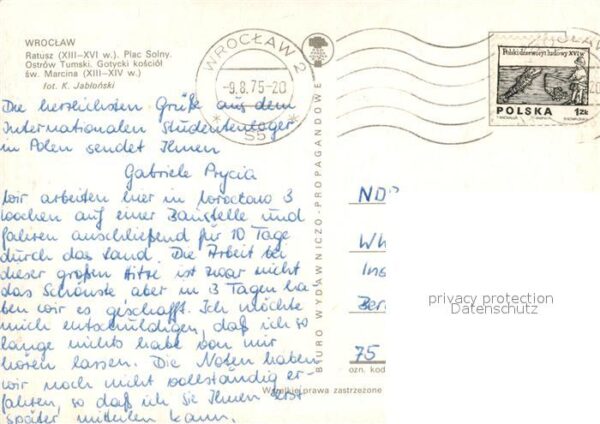 WROCŁAW
Ratusz (XIII—XVI w.). Plac Solny.
Ostrów Tumski. Gotycki kościół
św. Marcina (XIII—XIV w.)
fot. K. Jabłoński
WROCŁAW 2
-9.8.75-20
* S5 *
Polski drzeworyt ludowy XVI w.
POLSKA 1 ZŁ
Die herzlichsten Grüße aus dem
Internationalen Studentenlager
in Polen sendet Ihnen
Gabriele Prycia
Wir arbeiten hier in Wrocław 3
Wochen auf einer Baustelle und
fahren anschließend für 10 Tage
durch das Land. Die Arbeit bei
dieser großen Hitze ist zwar nicht
das Schönste aber in 3 Tagen ha-
ben wir es geschafft. Ich möchte
mich entschuldigen, daß ich so
lange nichts habe von mir
hören lassen. Die Noten haben
wir noch nicht vollständig er-
fahren, so daß ich sie Ihnen erst
später mitteilen kann.
BIURO WYDAWNICZO-PROPAGANDOWE
Wszelkie prawa zastrzeżone
Ber
75
ozn. kod
privacy protection
Datenschutz